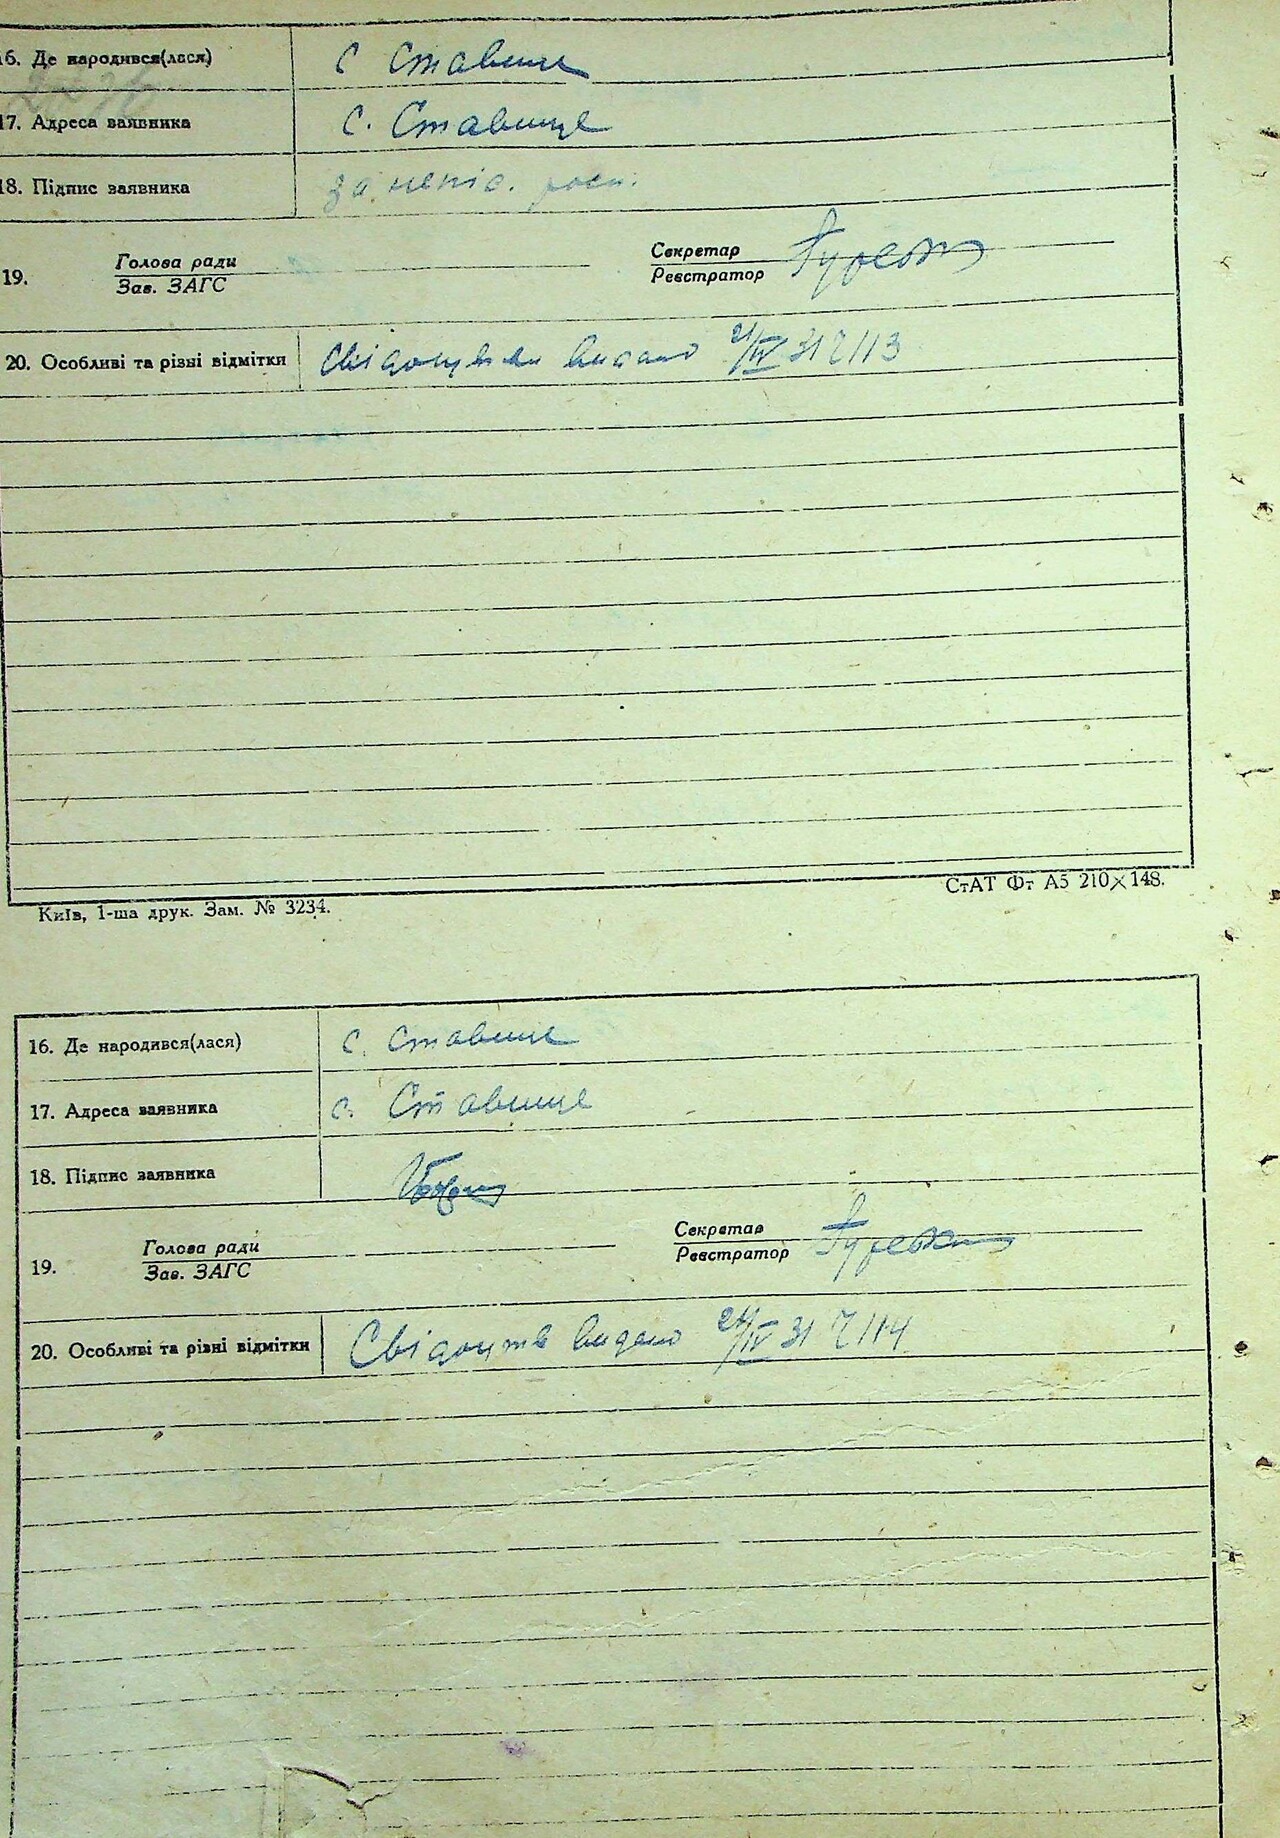 16. Де народився(лася) с Ставище
17. Адреса заявника с. Ставище
18. Підпис заявника за непіс. росп.
19. Голова ради Секретар
Зав. ЗАГС Реєстратор
20. Особливі та різні відмітки видано 21/IV 31 113
Київ, 1-ша друк. Зам. № 3234. СтАТ Фт А5 210×148.
16. Де народився(лася) с. Ставище
17. Адреса заявника с. Ставище
18. Підпис заявника
19. Голова ради Секретар
Зав. ЗАГС Реєстратор
20. Особливі та різні відмітки Свідоцтв видано 21/IV 31 114